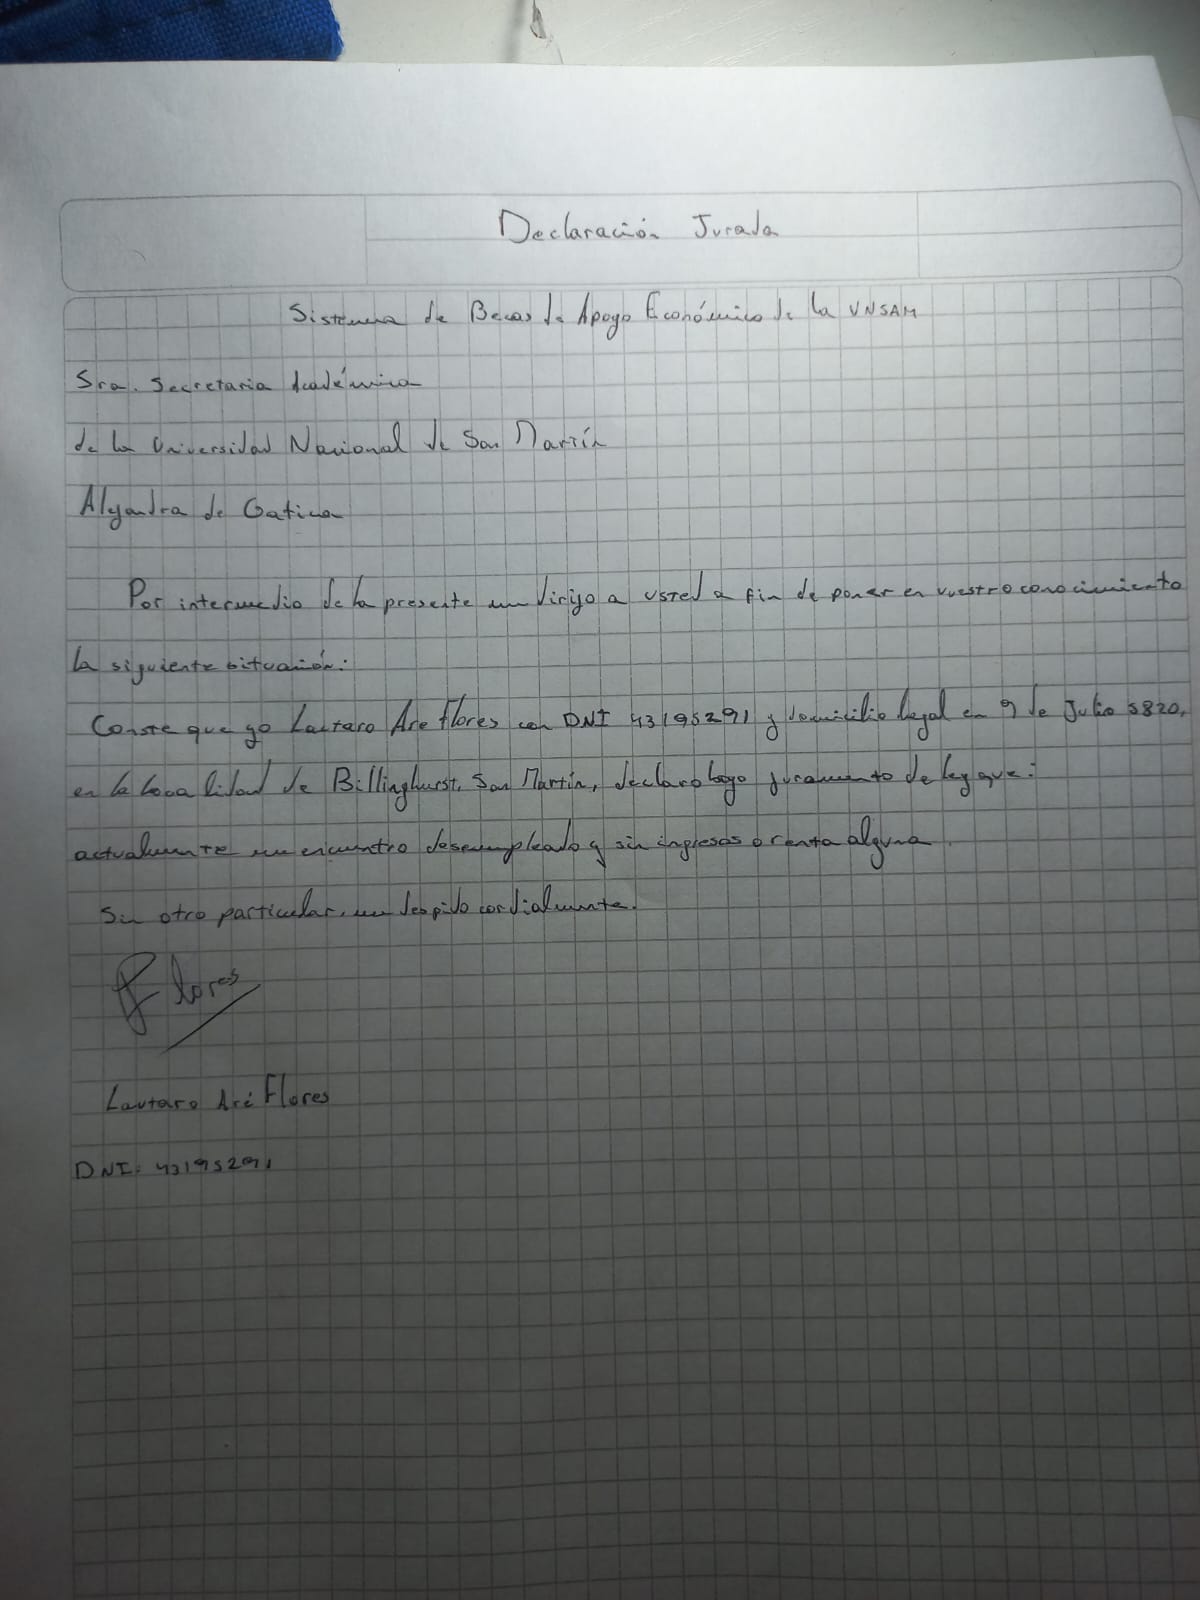 Declaración Jurada
Sistema de Becas de Apoyo Económico de la UNSAM
Sra. Secretaria Académica
de la Universidad Nacional de San Martín
Alejandra de Gatica
Por intermedio de la presente me dirijo a usted a fin de poner en vuestro conocimiento
la siguiente situación:
Conste que yo Lautaro Are Flores con DNI 43195291 y domicilio legal en 9 de Julio 5820,
en la localidad de Billinghurst, San Martín, declaro bajo juramento de ley que:
actualmente me encuentro desempleado y sin ingresos o renta alguna.
Sin otro particular, me despido cordialmente.
Flores
Lautaro Aré Flores
DNI: 43195291